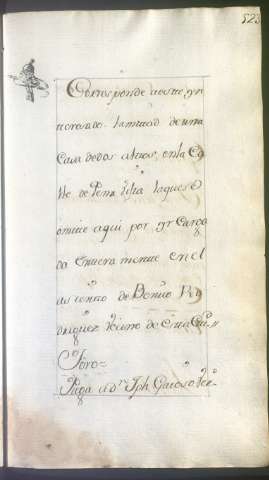 523
Corresponde a este yn
teresado la mitad de una
Casa de dos altos, en la Ca
lle de Pena Vista la que se
omite aqui por yr Carga
da enteramente en el
asiento de Benito Ro
driguez Vecino de esta Ciu.
Foro=
Paga a Dn Jph Gaioso